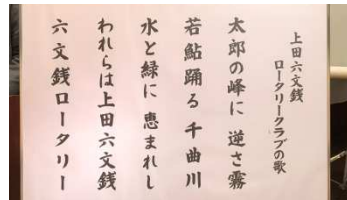 上田六文銭
ロータリークラブの歌
太郎の峰に 逆さ霧
若鮎踊る 千曲川
水と緑に 恵まれし
われらは上田六文銭
六文銭ロータリー